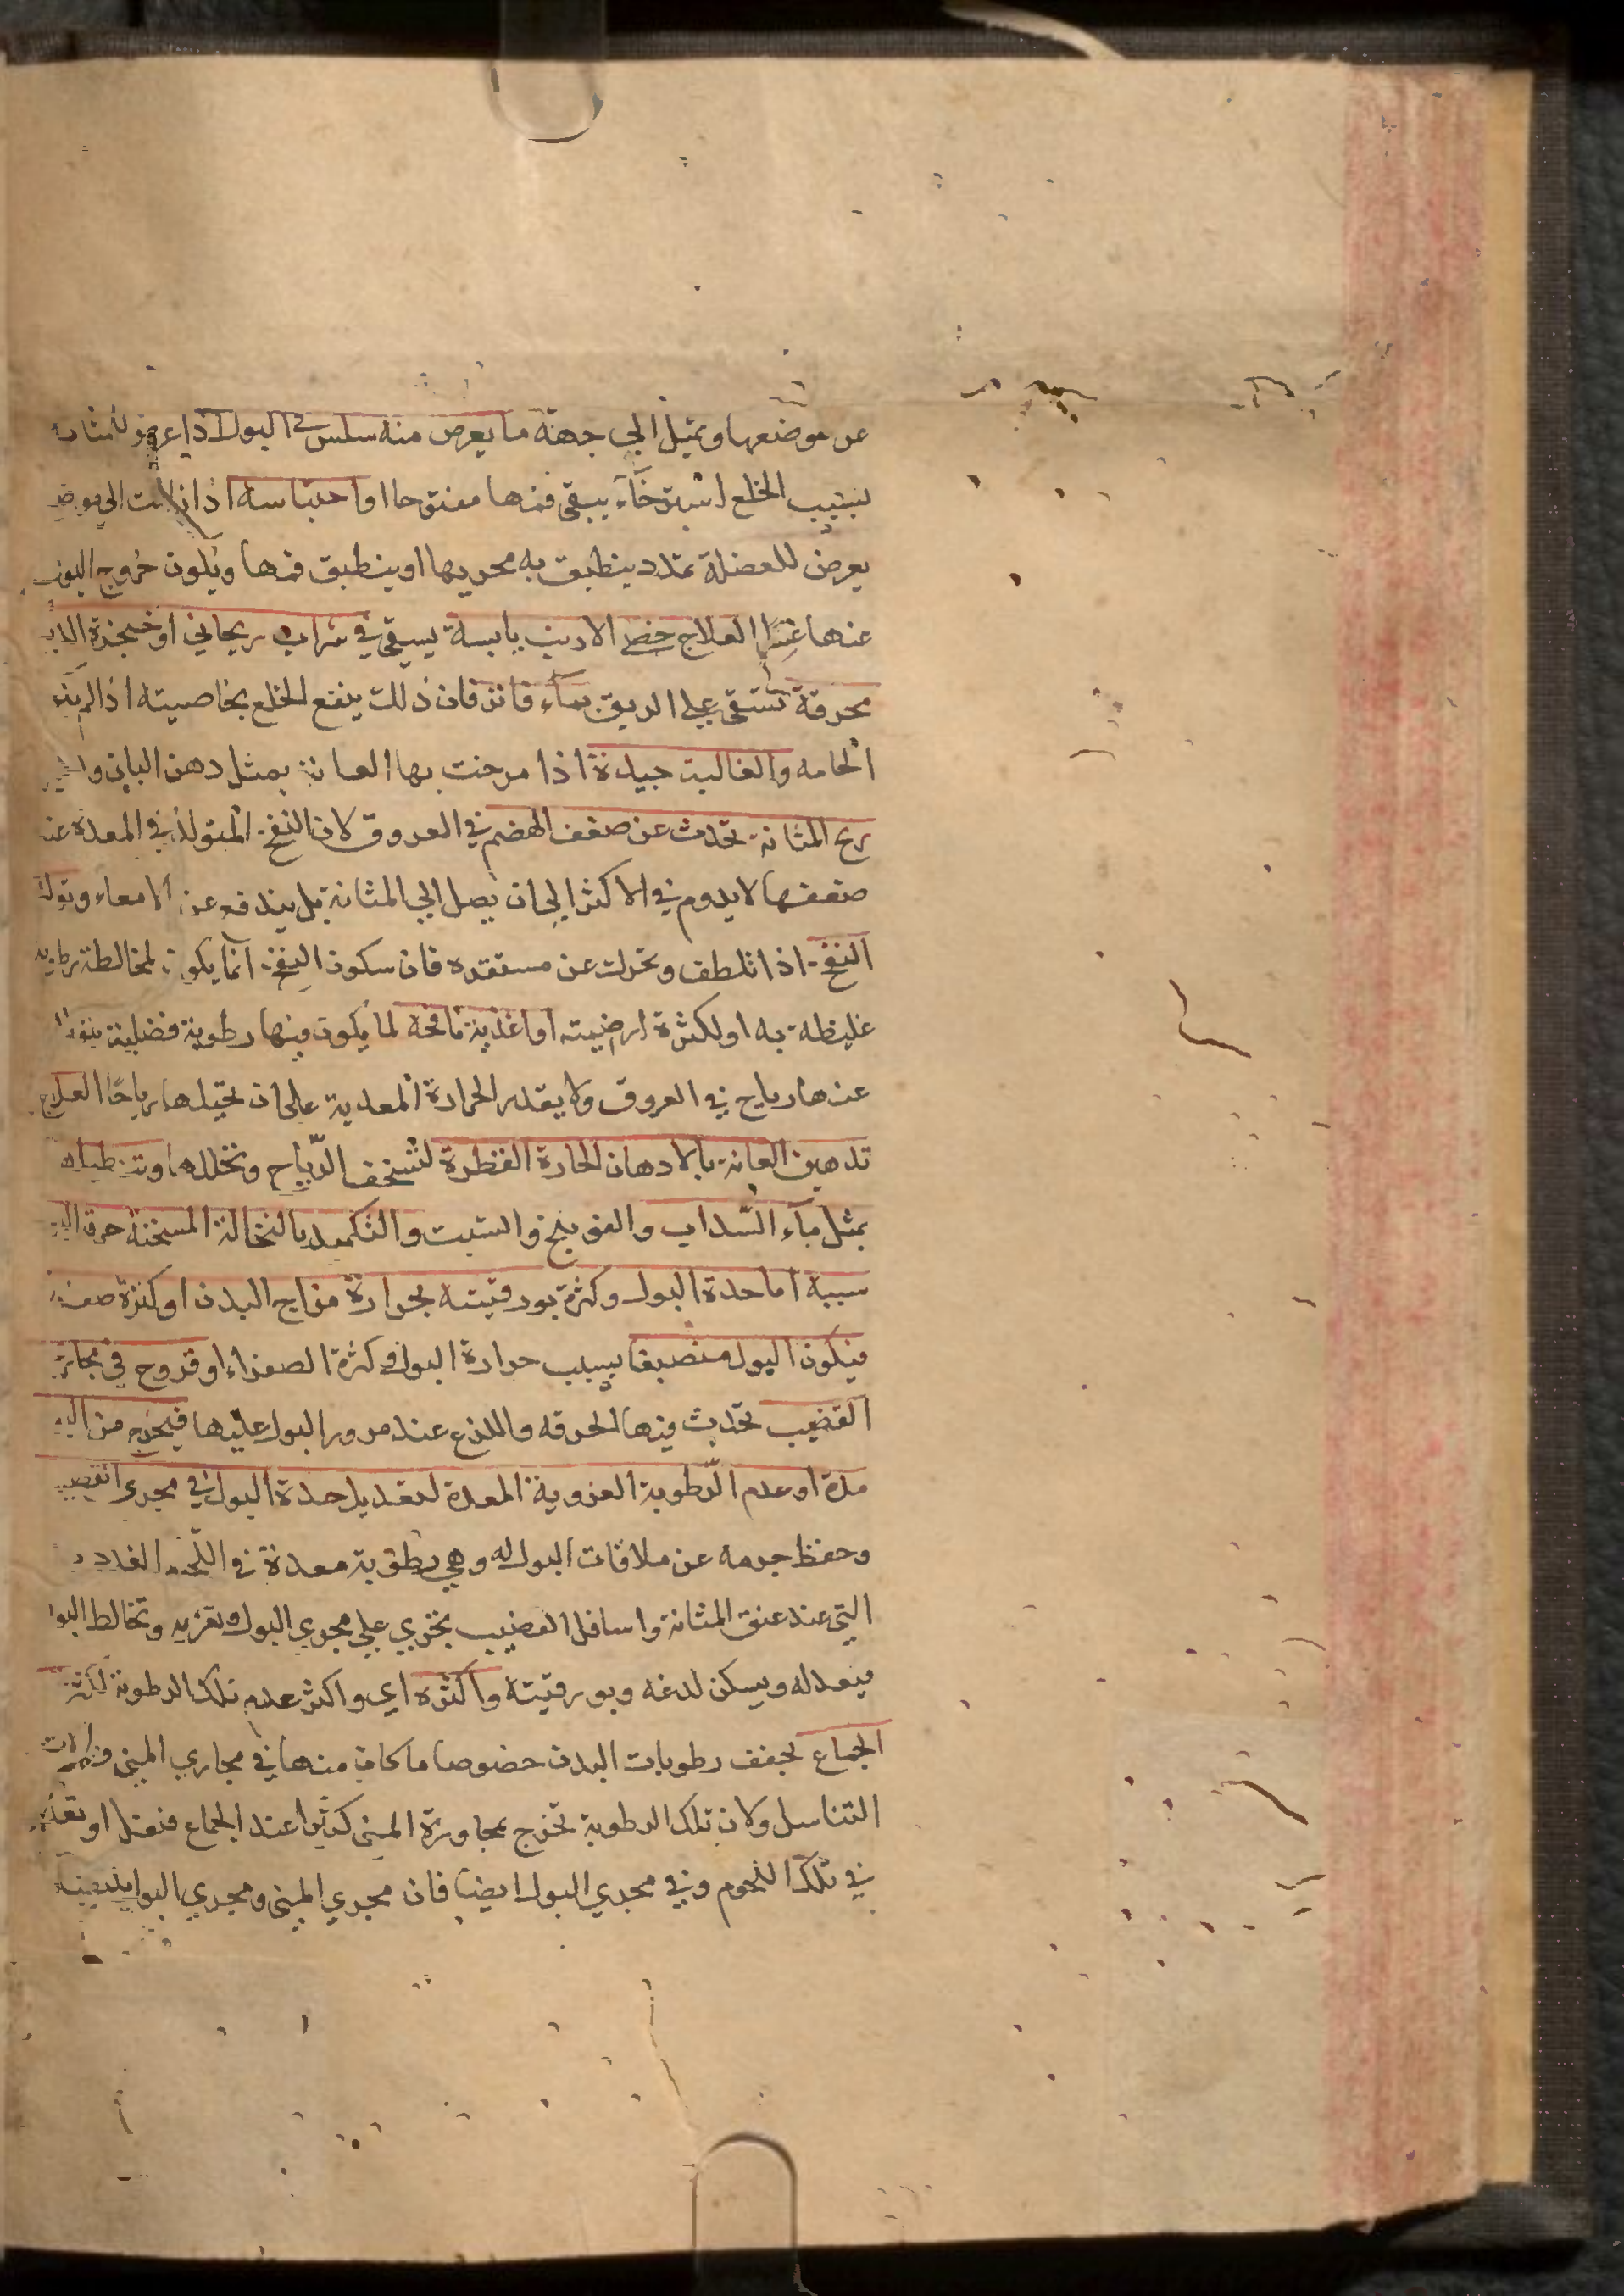 عن موضعها وتميل الي جهة ما يعرض منه سلس البول اذا عرض للمثانة
بسبب الخلع استرخآء يبقى فمها مفتوحا او احتباسه اذا زالت الي موضع
يعرض للعضلة تمدد ينطبق به مجريها او ينطبق فمها ويكون خروج البول
عنها العلاج خصي الارنب يابسة يسقى في شراب ريحاني او حنجرة الديك
محرقة تستقى علي الريق بمآء فاتر فان ذلك ينفع الخلع بخاصيته
الخامه والغالية جيدة اذا مرخت بها العانة بمثل دهن البان
ريح المثانة تحدث عن ضعف الهضم في العروق لان النفخ المتولد في المعدة عند
ضعفها لا يدوم في الاكثر الي ان يصل الي المثانة بل يندفع عن الامعاء
النفخ اذا تلطف وتحرك عن مستقره فان سكون النفخ انما يكون لمخالطة رطوبة
غليظة به او لكثرة ارضيته او اغذية نافخة لما يكون فيها رطوبة فضلية يتولد
عنها رياح في العروق ولا يقدر الحرارة المعدية على ان تحيلها رياحًا العلاج
تدهين العانة بالادهان الحارة القطرة لتسخف الرّياح وتحللها
بمثل مآء السّداب والفوتنج والشبت والتكميد بالنخالة المسخنة حرقة البول
سببه اما حدة البول وكثرة بورقيته لحرارة مزاج البدن او كثرة صفراء
فيكون البول منصبغا بسبب حرارة البول وكثرة الصفراء او قروح في مجاري
القضيب تحدث فيها الحرقه واللذع عند مرور البول عليها فيخرج من
مدة او عدم الرّطوبة الغروية المعدة لتعديل حدة البول في مجرى القضيب
وحفظ جرمه عن ملاقات البول له وهي رطوبة معدة في اللّحم الغددي
التي عند عنق المثانة واسافل القضيب تجري علي مجري البول وتغريه وتخالط البول
فيعدله ويسكن لدغه وبورقيته واكثره اي واكثر عدم تلك الرطوبة لكثرة
الجماع لجفف رطوبات البدن خصوصا ما كان منها في مجاري المني والات
التناسل ولان تلك الرطوبة تخرج بمجاورة المني كثيرا عند الجماع فتقل او تعدم
في تلك اللحوم وفي مجري البول ايضا فان مجري المني ومجري البول